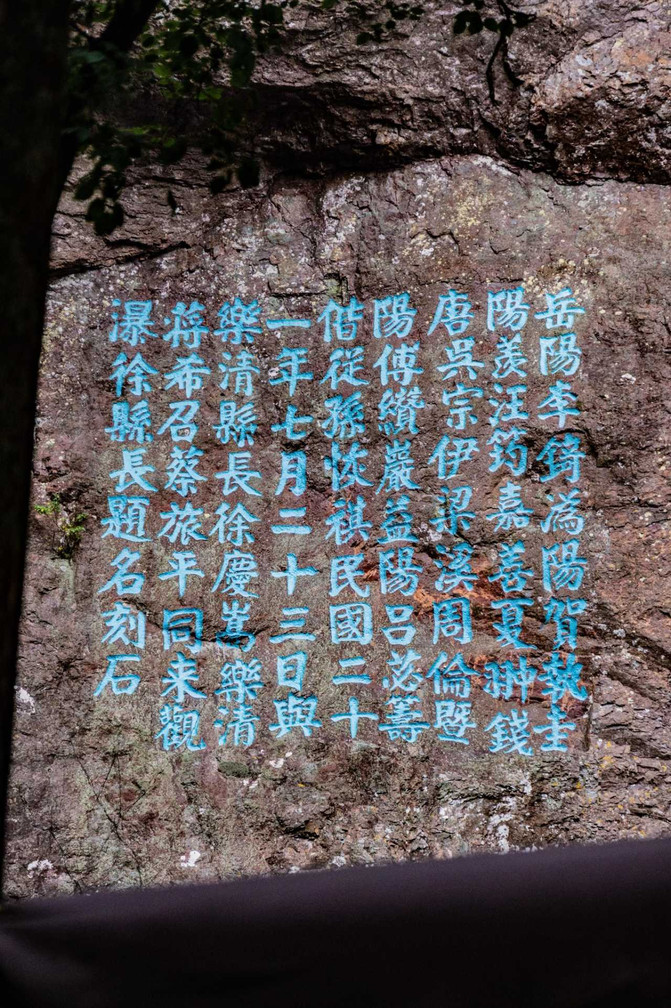 岳陽李錡溈陽賀執圭
陽羨汪筠嘉善夏翀錢
唐吳宗伊梁溪周倫暨
陽傅纘嚴益陽呂苾籌
偕從孫恢祺民國二十
一年七月二十三日與
樂清縣長徐慶嵩樂清
蔣希召蔡旅平同来觀
瀑徐縣長題名刻石